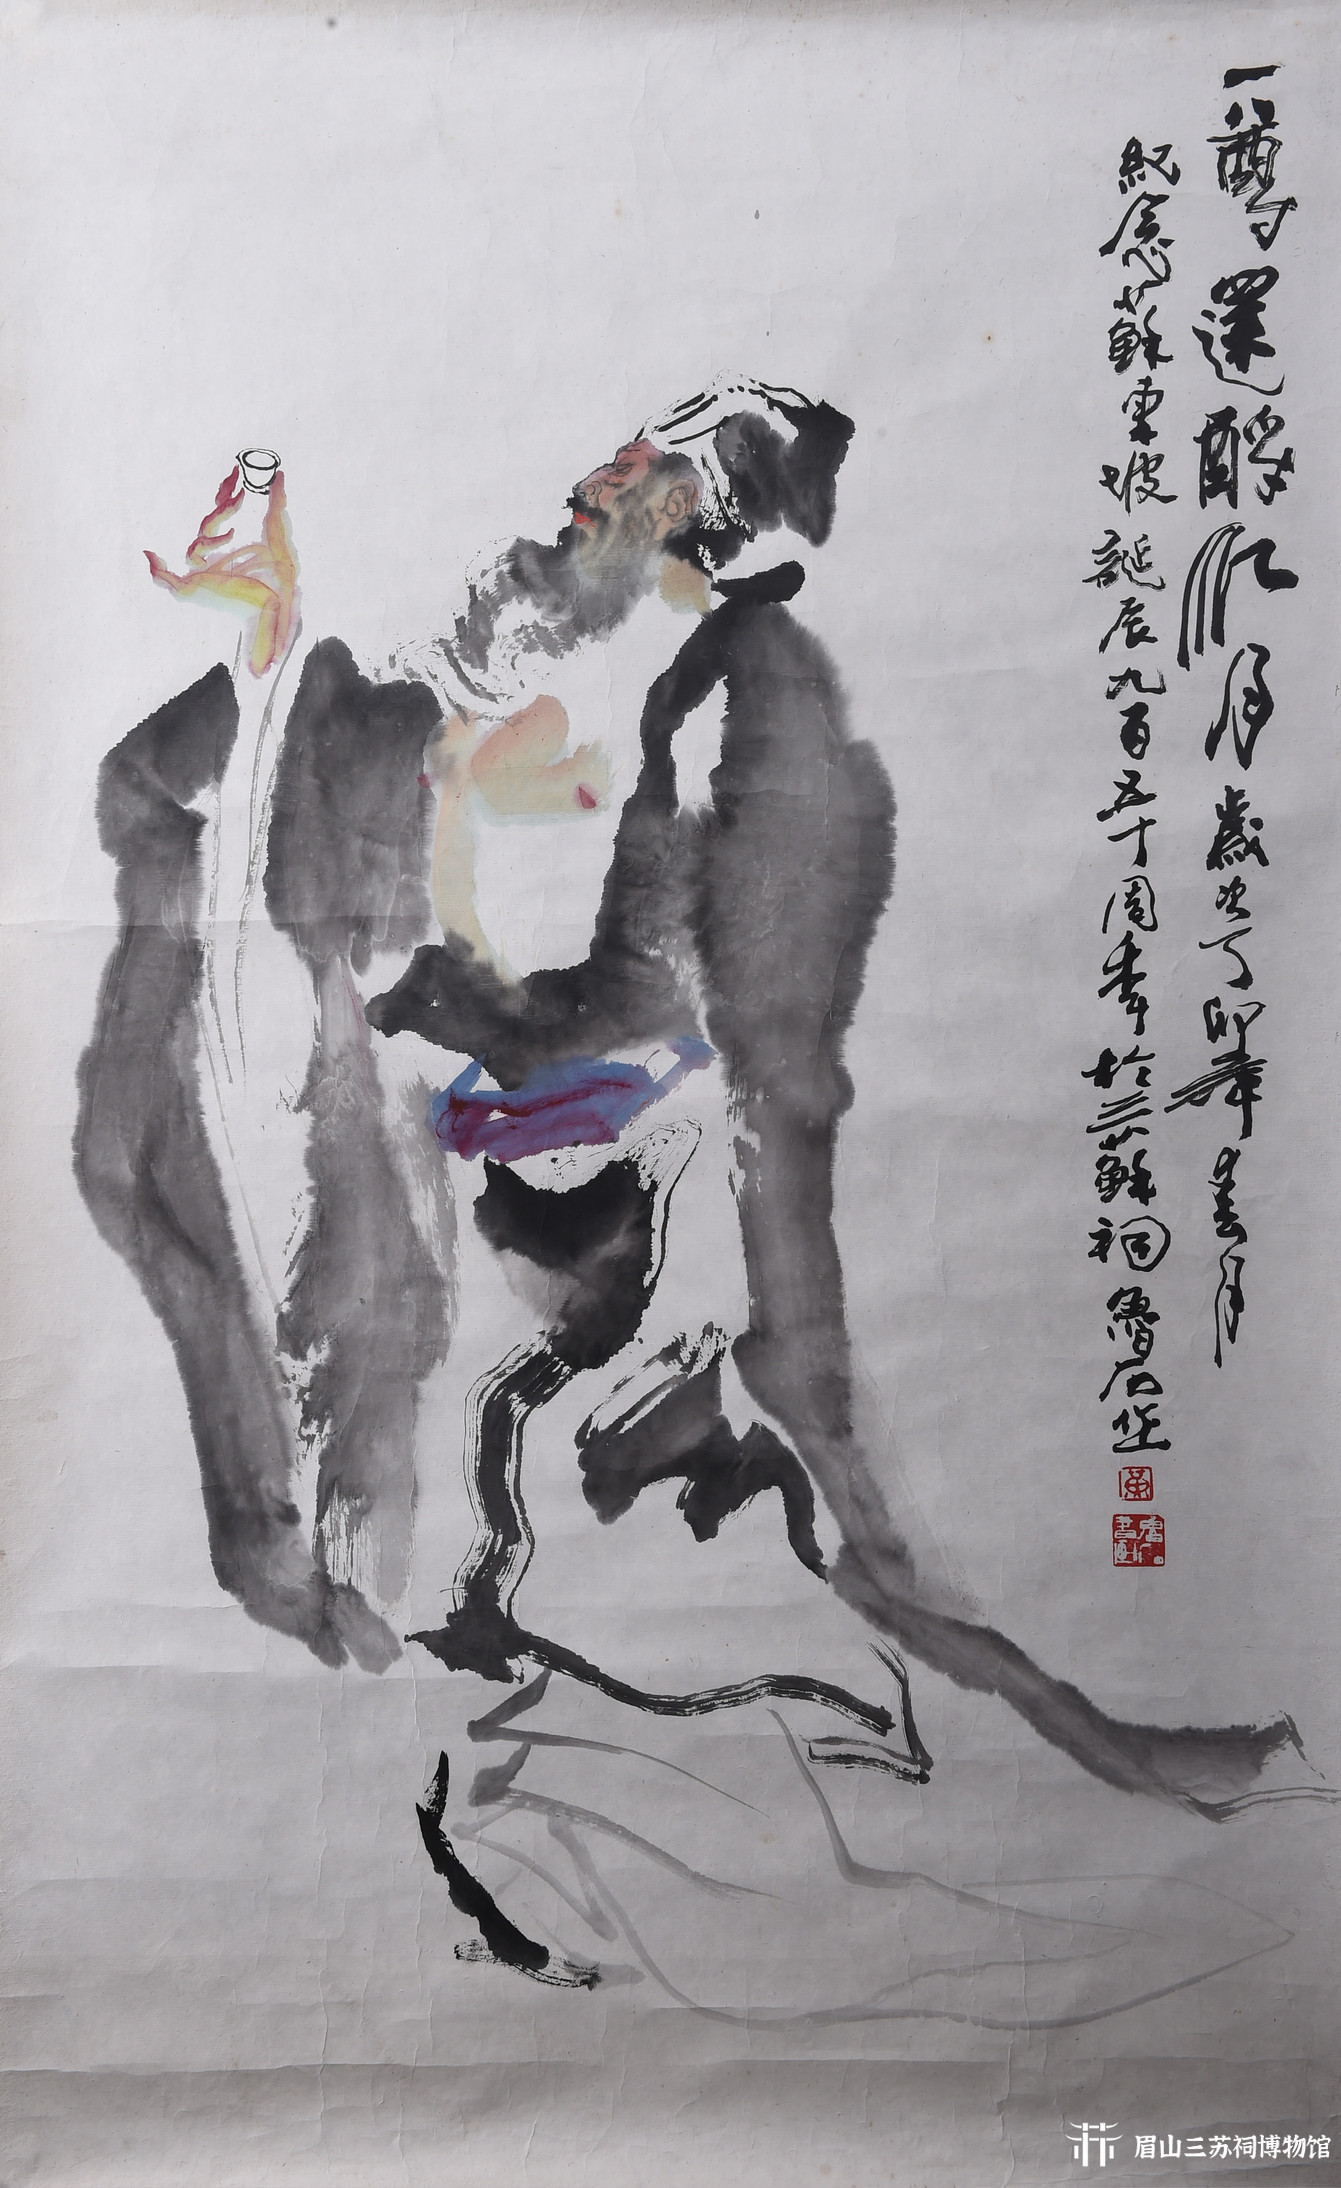 一尊還酹江月歲次丁卯年春月
紀念蘇東坡誕辰九百五十周年於三蘇祠魯石作
黃
眉山三苏祠博物馆